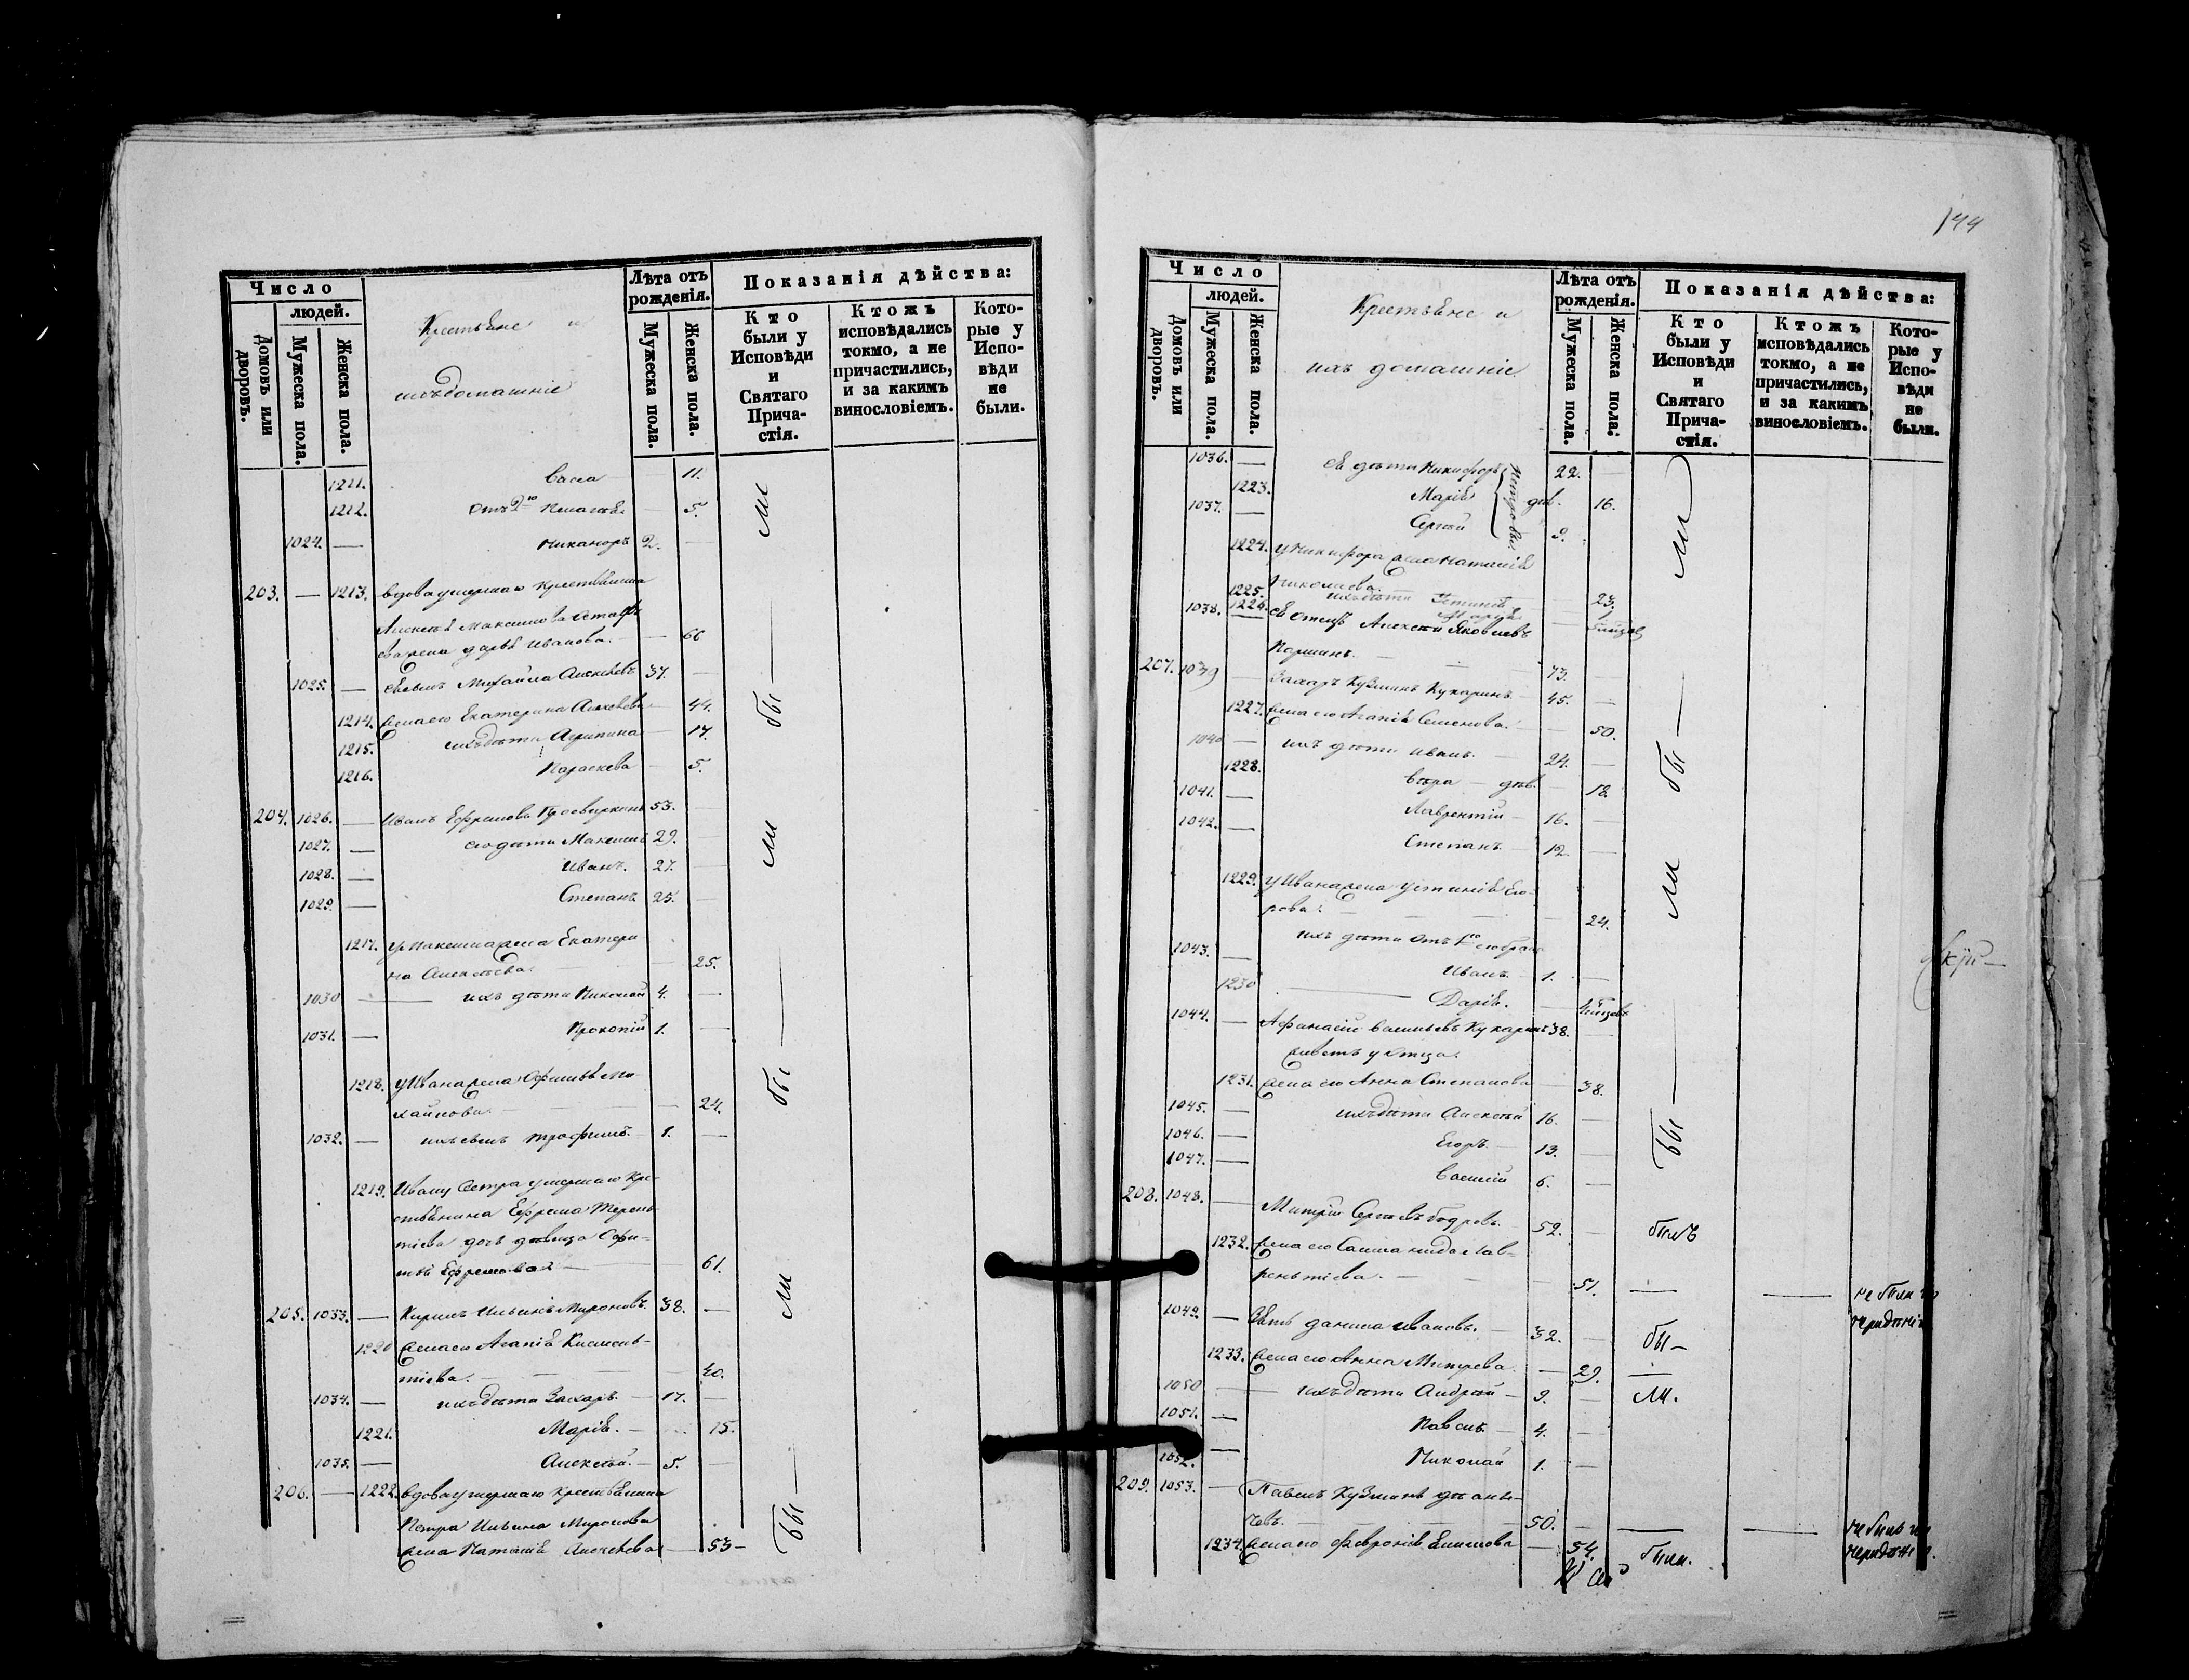 Число
людей.
Домовъ или дворовъ.
Мужеска пола.
Женска пола.
Крестьяне и
ихъ домашніе
Лѣта отъ рожденія.
Мужеска пола.
Женска пола.
Показанія дѣйства:
Кто были у Исповѣди и Святаго Причастія.
Ктожъ исповѣдались токмо, а не причастились, и за какимъ винословіемъ.
Которые у Исповѣди не были.
1211. Васса 11.
1212. Отъ 2го 5.
1024. — Никаноръ 2. —
203. — 1213. Вдова умершаго крестьянина
Алексѣя Максимова
жена Дарья Иванова. — 66
1025. — Ея сынъ Михайла Алексѣевъ 37. —
1214. Жена его Екатерина Алексѣева — 44.
1215. ихъ дѣти Агрипина — 17.
1216. Параскева — 5.
204. 1026. — Иванъ Ефремовъ Просвиркинъ 53. —
1027. — его дѣти Максимъ 29. —
1028. — Иванъ. 27. —
1029. — Степанъ 25. —
1217. у Максима жена Екатери
на Алексѣева. — 25.
1030 — ихъ дѣти Николай 4. —
1031. — Прокопій 1. —
1218. у Ивана жена Ми-
хайлова. — 24.
1032. — ихъ сынъ Трофимъ. — 1. —
1219. Ивану сестра умершаго кре-
стьянина Ефрема Терень-
тіева дочь дѣвица
Ефремова — 61.
205. 1033. — Кирилъ Ильинъ Мироновъ. 38. —
1220 Жена его Агапія Климень-
тіева. — 40.
1034. — ихъ дѣти Захаръ — 17. —
1221. Марія. — 15.
1035. — Алексѣй. — 5. —
206. — 1222. Вдова умершаго крестьянина
Петра Ильина Миронова
жена Наталія Алексѣева — 53 —
бы — ли
бы — ли
бы — ли
144
Число
людей.
Домовъ или дворовъ.
Мужеска пола.
Женска пола.
Крестьяне и
ихъ домашніе
Лѣта отъ рожденія.
Мужеска пола.
Женска пола.
Показанія дѣйства:
Кто были у Исповѣди и Святаго Причастія.
Ктожъ исповѣдались токмо, а не причастились, и за какимъ винословіемъ.
Которые у Исповѣди не были.
1036. — ея дѣти Никифоръ 22. —
1223. Марія дѣв. 16.
1037. — Сергѣй 9.
Петровы
1224. у Никифора жена Наталія
Николаева 23.
1225. ихъ дѣти Устинія 1
1226.
1038. — ея отецъ Алексѣй Яковлевъ
Паршинъ. — 73. —
207. 1039 — Захаръ Кузминъ Кукаринъ 45. —
1227. Жена его Агапія Семенова. — 50.
1040 — ихъ дѣти Иванъ. — 24. —
1228. Вѣра — дѣв. — 18.
1041. — Лаврентій — 16. —
1042. — Степанъ — 12. —
1229. у Ивана жена Устинія Его-
рова. — 24.
ихъ дѣти отъ 1го брака
1043. — Иванъ — 1. —
1230 — Дарія. —
1044. — Афанасій Васильевъ Кукаринъ 38. —
живетъ у отца.
1231. Жена его Анна Степанова — 38.
1045. — ихъ дѣти Алексѣй 16. —
1046. — Егоръ — 13. —
1047. — Василій 6. —
208. 1048. — Митрій Сергѣевъ Бодровъ. — 52. — былъ
1232. Жена его Саламанида Лав-
рентіева. — 51. — — не была по
нерадѣнію
1049. — Зять Данила Ивановъ. — 32. — бы —
1233. Жена его Анна Митрева — 29. —
1050 — ихъ дѣти Андрей — 9. — ли.
1051. — Павелъ — 4. —
1052. — Николай 1. —
209. 1053. — Павелъ Кузминъ
чевъ. — 50. — — — не былъ по
нерадѣнію.
1234. Жена его Февронія — 54. была.
бы — ли
бы — ли